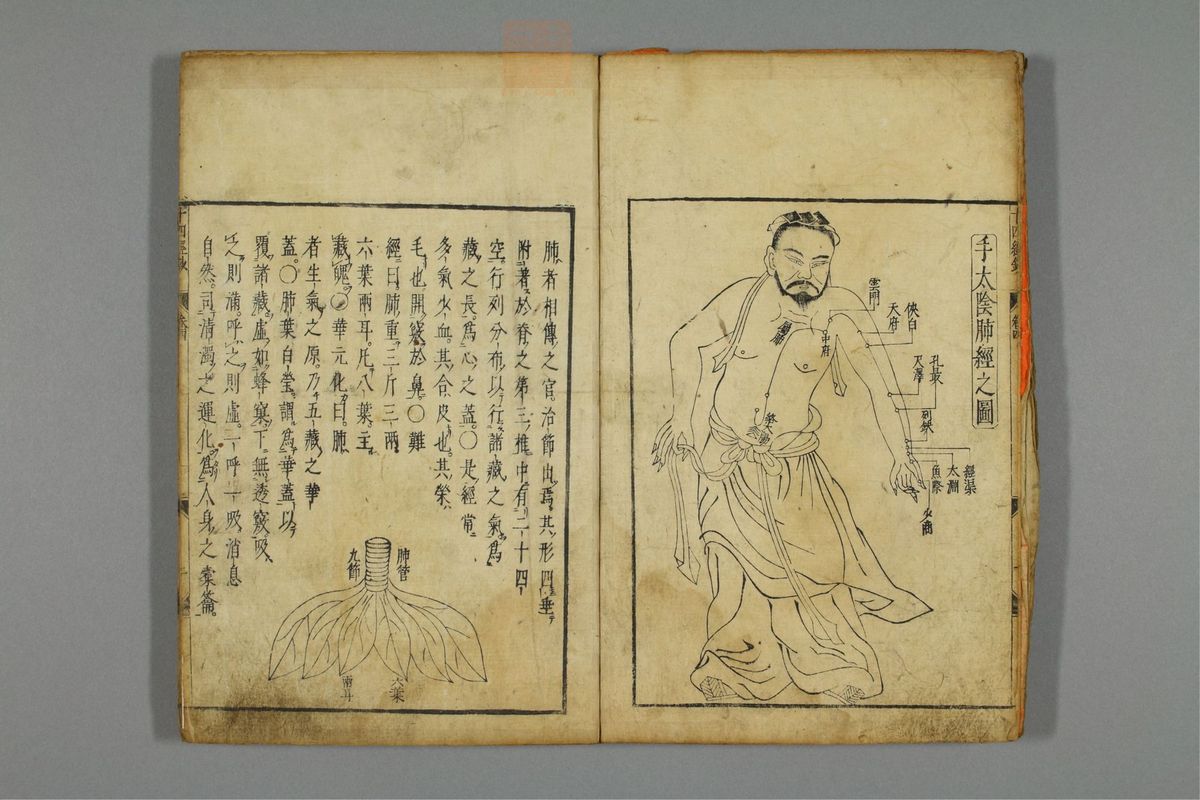 手太陰肺經之圖
雲門
天府
俠白
中府
尺澤
孔最
列缺
經渠
太淵
魚際
少商
肺者相傳之官治節出焉其形四垂
附著於脊之第三椎中有二十四
空行列分布以行諸藏之氣爲
藏之長爲心之蓋○是經常
多氣少血其合皮也其榮
毛也開竅於鼻○難
經曰肺重三斤三兩
六葉兩耳凡八葉主
藏魄○華元化曰肺
者生氣之原乃五藏之華
蓋○肺葉白瑩謂爲華蓋以
覆諸藏虛如蜂窠下無透竅吸
之則滿呼之則虛一呼一吸消息
自然司清濁之運化爲人身之橐籥
肺管
九節
六葉
兩耳